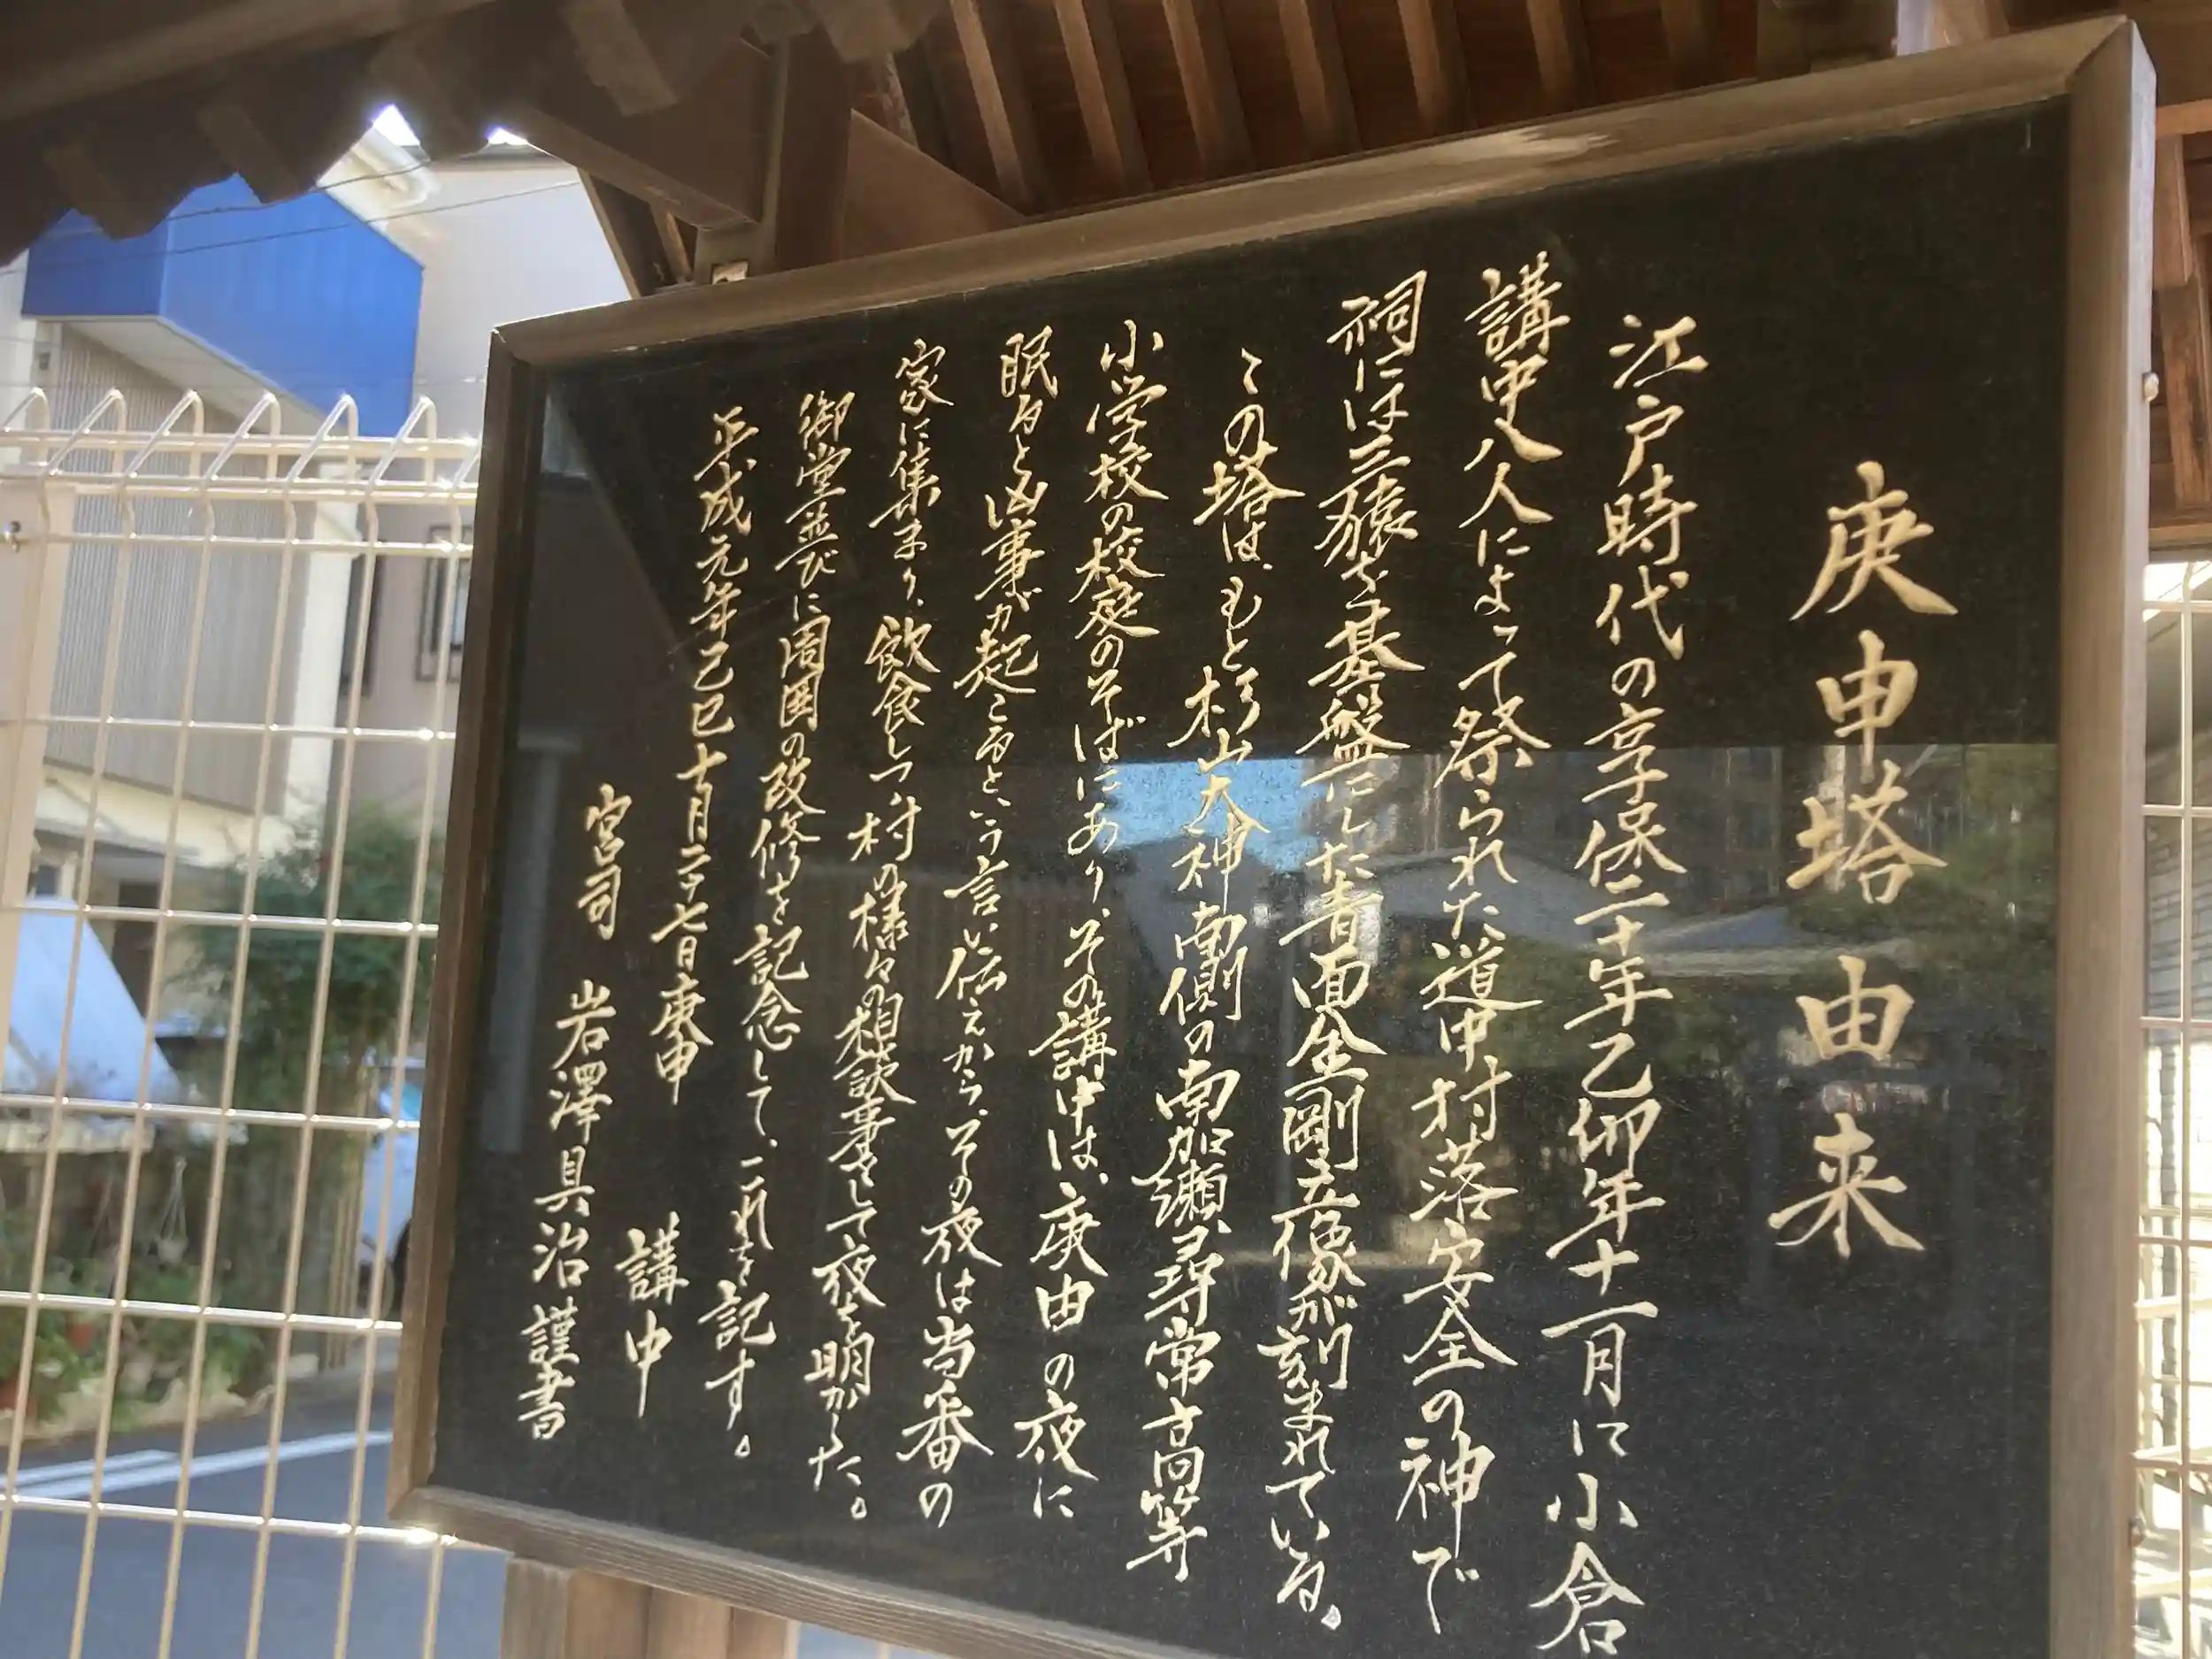 庚申塔由来
江戸時代の享保二十年乙卯年十一月に小倉
講中八人によって祭られた道中村落安全の神で
祠には三猿を基盤にした青面金剛立像が刻まれている。
この塔は、もと杉山大神南側の南加瀬尋常高等
小学校の校庭のそばにあり、その講中は、庚由の夜に
眠ると凶事が起こるという言い伝えから、その夜は当番の
家に集まり、飲食しつ村の様々の相談事をして夜を明かした。
御堂並びに周囲の改修を記念して、これを記す。
平成元年己巳十月二十七日庚申 講中
宮司 岩澤具治謹書